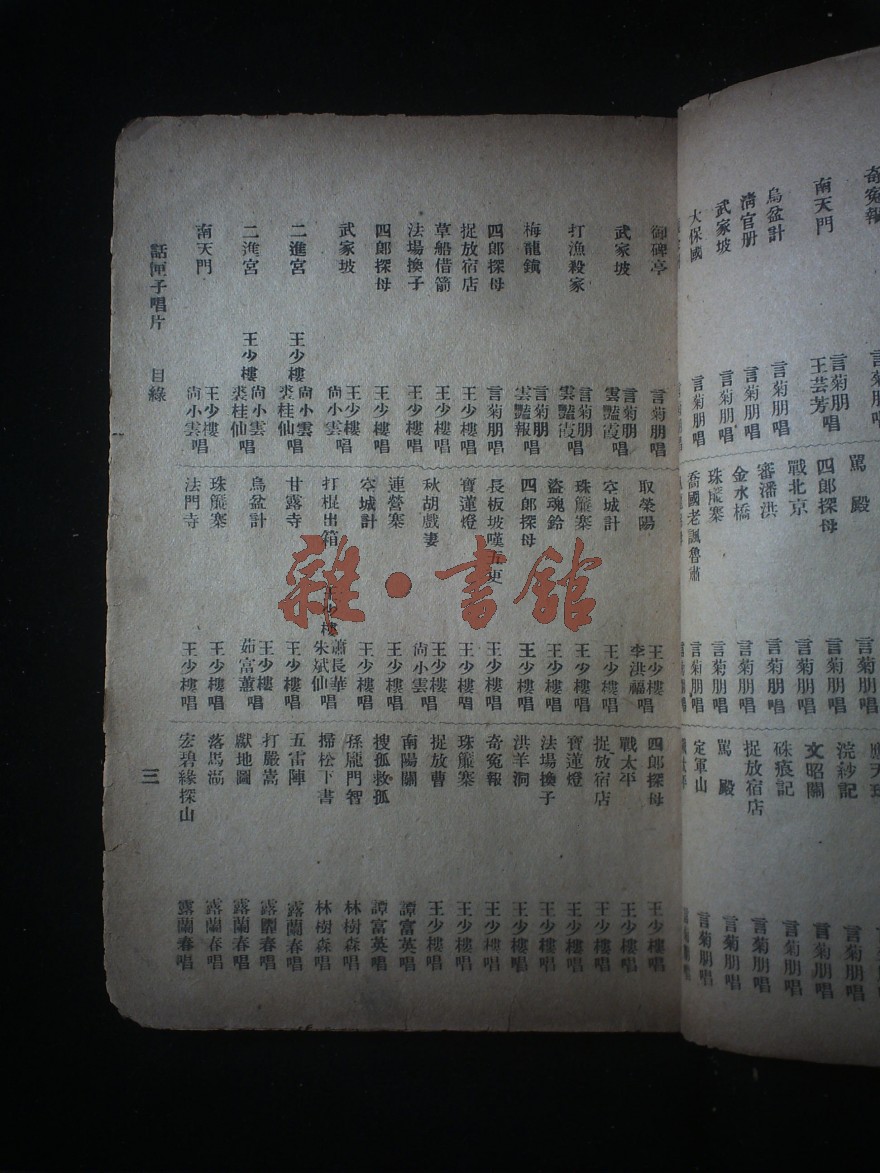 奇冤報 言菊朋唱
南天門 言菊朋 王芸芳唱
烏盆計 言菊朋唱
清官册 言菊朋唱
武家坡 言菊朋唱
大保國 言菊朋唱
罵殿 言菊朋唱
四郎探母 言菊朋唱
戰北京 言菊朋唱
審潘洪 言菊朋唱
金水橋 言菊朋唱
珠簾寨 言菊朋唱
喬國老諷魯肅 言菊朋唱
浣紗記 言菊朋唱
文昭關 言菊朋唱
硃痕記 言菊朋唱
捉放宿店 言菊朋唱
罵殿 言菊朋唱
定軍山 言菊朋唱
御碑亭 言菊朋唱
武家坡 言菊朋 雲艷霞唱
打漁殺家 言菊朋 雲艷霞唱
梅龍鎮 言菊朋 雲艷報唱
四郎探母 言菊朋唱
捉放宿店 王少樓唱
草船借箭 王少樓唱
法場換子 王少樓唱
四郎探母 王少樓唱
武家坡 王少樓 尙小雲唱
二進宮 王少樓 尙小雲 裘桂仙唱
二進宮 王少樓 尙小雲 裘桂仙唱
南天門 王少樓 尙小雲唱
取滎陽 王少樓 李洪福唱
空城計 王少樓唱
珠簾寨 王少樓唱
盜魂鈴 王少樓唱
四郎探母 王少樓唱
長板坡嘆五更 王少樓唱
寶蓮燈 王少樓唱
秋胡戲妻 王少樓 尙小雲唱
連營寨 王少樓唱
空城計 王少樓唱
打棍出箱 王少樓 蕭長華 朱斌仙唱
甘露寺 王少樓唱
烏盆計 王少樓 茹富蕙唱
珠簾寨 王少樓唱
法門寺 王少樓唱
四郎探母 王少樓唱
戰太平 王少樓唱
捉放宿店 王少樓唱
寶蓮燈 王少樓唱
法場換子 王少樓唱
洪羊洞 王少樓唱
奇冤報 王少樓唱
珠簾寨 王少樓唱
捉放曹 王少樓唱
南陽關 譚富英唱
搜孤救孤 譚富英唱
孫龐門智 林樹森唱
掃松下書 林樹森唱
五雷陣 露蘭春唱
打嚴嵩 露蘭春唱
獻地圖 露蘭春唱
落馬湖 露蘭春唱
宏碧緣探山 露蘭春唱
話匣子唱片 目錄
三
雜·書館